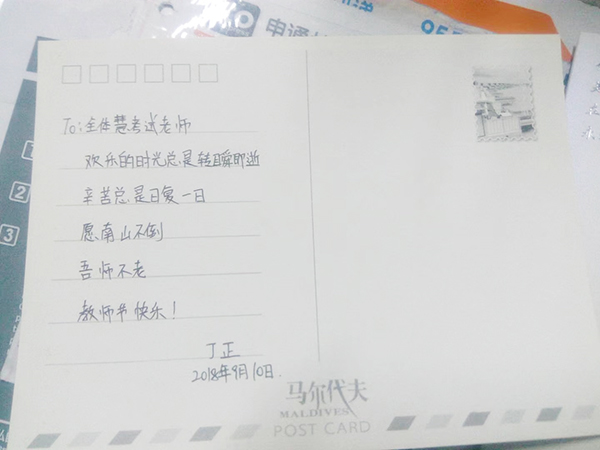 申通
To:全体慧考试老师
欢乐的时光总是转瞬即逝
辛苦总是日复一日
愿南山不倒
吾师不老
教师节快乐!
丁正
2018年9月10日.
马尔代夫
MALDIVES
POST CARD
1
2
3